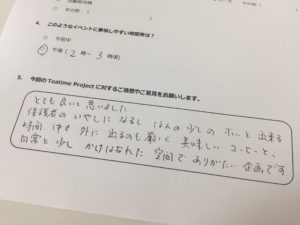 その他（
4. このようなイベントに参加しやすい時間帯は？
午前中
午後（ 2 時～ 3 時頃）
5. 今回の Teatime Project に対するご感想やご意見をお願いします。
とても良いと思いました。
保護者のいやしになるし ほんの少しの ホッと出来る
時間 中々 外に 出るのも 厳しく 美味しい コーヒーと、
日常と少し かけはなれた 空間で ありがたい 企画です